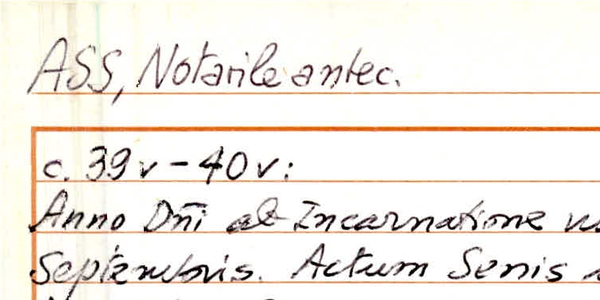 ASS, Notarile antec.
c. 39v - 40v:
Anno Dñi ab Incarnatione
Septembris. Actum Senis